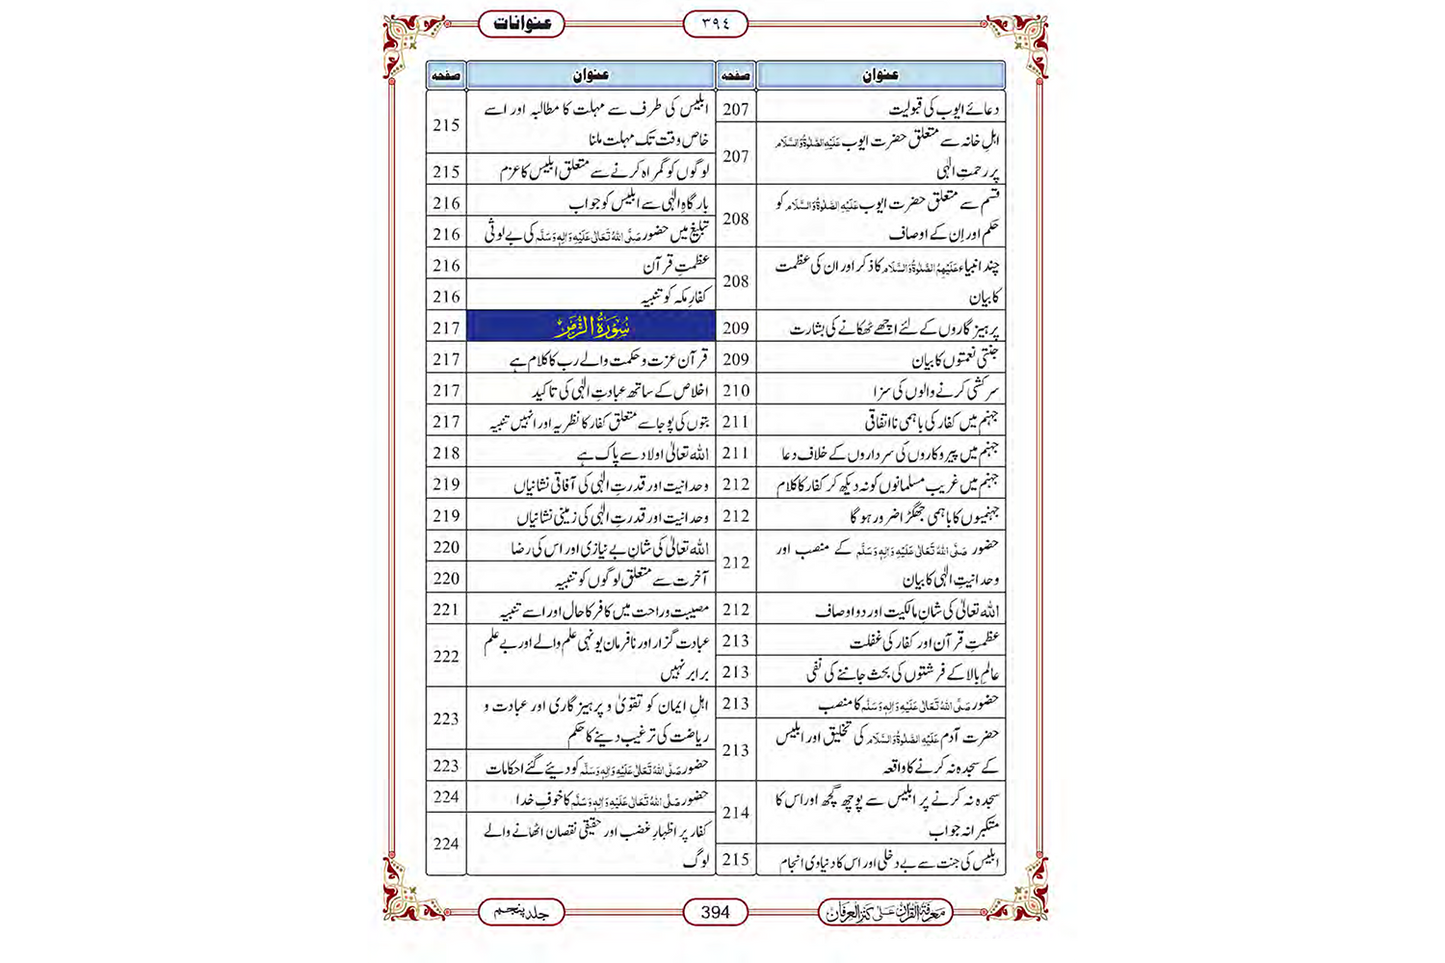 عنوانات
٣٩٤
عنوان صفحہ
دعائے ایوب کی قبولیت 207
اہلِ خانہ سے متعلق حضرت ایوب عَلَیْہِ الصَّلٰوۃُ وَالسَّلَام
پر رحمتِ الٰہی 207
قسم سے متعلق حضرت ایوب عَلَیْہِ الصَّلٰوۃُ وَالسَّلَام کو
حکم اور اِن کے اوصاف 208
چند انبیاء عَلَیْہِمُ الصَّلٰوۃُ وَالسَّلَام کا ذکر اور ان کی عظمت
کا بیان 208
پرہیز گاروں کے لئے اچھے ٹھکانے کی بشارت 209
جنتی نعمتوں کا بیان 209
سرکشی کرنے والوں کی سزا 210
جہنم میں کفار کی باہمی نااتفاقی 211
جہنم میں پیروکاروں کی سرداروں کے خلاف دعا 211
جہنم میں غریب مسلمانوں کو نہ دیکھ کر کفار کا کلام 212
جہنمیوں کا باہمی جھگڑا ضرور ہو گا 212
حضور صَلَّی اللہُ تَعَالٰی عَلَیْہِ وَاٰلِہٖ وَسَلَّم کے منصب اور
وحدانیتِ الٰہی کا بیان 212
اللہ تعالیٰ کی شانِ مالکیت اور دو اوصاف 212
عظمتِ قرآن اور کفار کی غفلت 213
عالَمِ بالا کے فرشتوں کی بحث جاننے کی نفی 213
حضور صَلَّی اللہُ تَعَالٰی عَلَیْہِ وَاٰلِہٖ وَسَلَّم کا منصب 213
حضرت آدم عَلَیْہِ الصَّلٰوۃُ وَالسَّلَام کی تخلیق اور ابلیس
کے سجدہ نہ کرنے کا واقعہ 213
سجدہ نہ کرنے پر ابلیس سے پوچھ گچھ اور اس کا
متکبرانہ جواب 214
ابلیس کی جنت سے بے دخلی اور اس کا دنیاوی انجام 215
عنوان صفحہ
ابلیس کی طرف سے مہلت کا مطالبہ اور اسے
خاص وقت تک مہلت ملنا 215
لوگوں کو گمراہ کرنے سے متعلق ابلیس کا عزم 215
بارگاہِ الٰہی سے ابلیس کو جواب 216
تبلیغ میں حضور صَلَّی اللہُ تَعَالٰی عَلَیْہِ وَاٰلِہٖ وَسَلَّم کی بے لوثی 216
عظمتِ قرآن 216
کفارِ مکہ کو تنبیہ 216
سُوْرَۃُ الزُّمَر 217
قرآن عزت و حکمت والے رب کا کلام ہے 217
اخلاص کے ساتھ عبادتِ الٰہی کی تاکید 217
بتوں کی پوجا سے متعلق کفار کا نظریہ اور انہیں تنبیہ 217
اللہ تعالیٰ اولاد سے پاک ہے 218
وحدانیت اور قدرتِ الٰہی کی آفاقی نشانیاں 219
وحدانیت اور قدرتِ الٰہی کی زمینی نشانیاں 219
اللہ تعالیٰ کی شانِ بے نیازی اور اس کی رضا 220
آخرت سے متعلق لوگوں کو تنبیہ 220
مصیبت و راحت میں کافر کا حال اور اسے تنبیہ 221
عبادت گزار اور نافرمان یونہی علم والے اور بے علم
برابر نہیں 222
اہلِ ایمان کو تقویٰ و پرہیز گاری اور عبادت و
ریاضت کی ترغیب دینے کا حکم 223
حضور صَلَّی اللہُ تَعَالٰی عَلَیْہِ وَاٰلِہٖ وَسَلَّم کو دیئے گئے احکامات 223
حضور صَلَّی اللہُ تَعَالٰی عَلَیْہِ وَاٰلِہٖ وَسَلَّم کا خوفِ خدا 224
کفار پر اظہارِ غضب اور حقیقی نقصان اٹھانے والے
لوگ 224
معرفۃ القرآن علی کنز العرفان
394
جلد پنجم